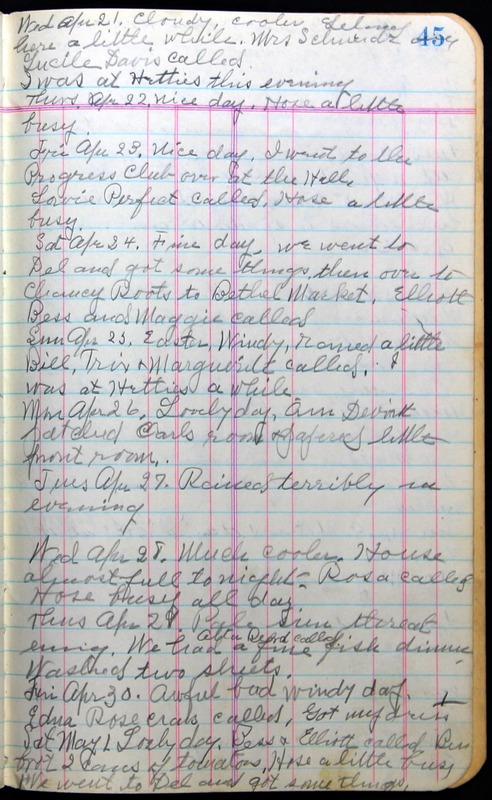 45
Wed Apr 21. Cloudy, cooler,
here a little while. Mrs Schwendt and
Lucile Davis called.
I was at Hetties this evening
Thurs Apr 22. Nice day. Hose a little
busy.
Fri Apr 23. Nice day, I went to the
Progress Club over at the Hells.
Lovie Perfect called. Hose a little
busy.
Sat Apr 24. Fine day, we went to
Del and got some things, then over to
Chancy Roots to Bethel Market. Elliott
Bess and Maggie called
Sun Apr 25. Easter, Windy, rained a little
Bill, Trix & Marguerite called. I
was at Hetties a while
Mon Apr 26. Lovely day, Ann Devirtt
patched Carls room & papered little
front room.
Tues Apr 27. Rained terribly in
evening
Wed Apr 28. Much cooler. House
almost full tonight. Rosa called
Hose busy all day
Thus Apr 29 Pale Sun threat
ening. We had a fine fish dinner
Alta called
Washed two sheets.
Fri Apr 30. Awful bad windy day.
Edna Rosecrans called, Got my dress
Sat May 1 Lovely day. Bess & Elliott called Ben
brot 2 cans of tomatoes, Hose a little busy
We went to Del and got some things,